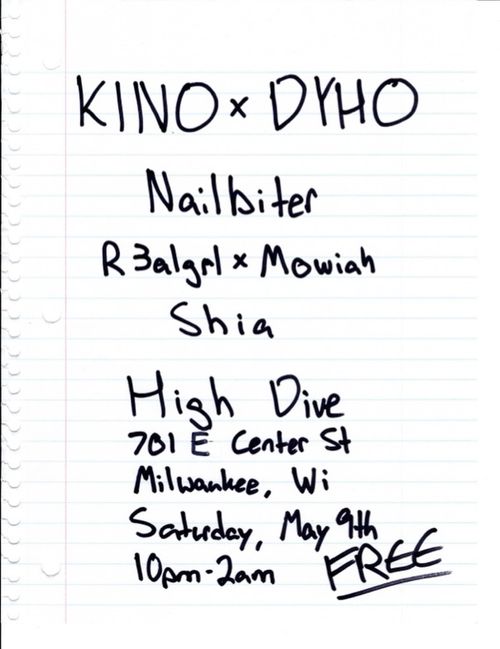 KINO x DYHO
Nailbiter
R3algrl x Mowiah
Shia
High Dive
701 E Center St
Milwaukee, Wi
Saturday, May 9th
10pm-2am
FREE